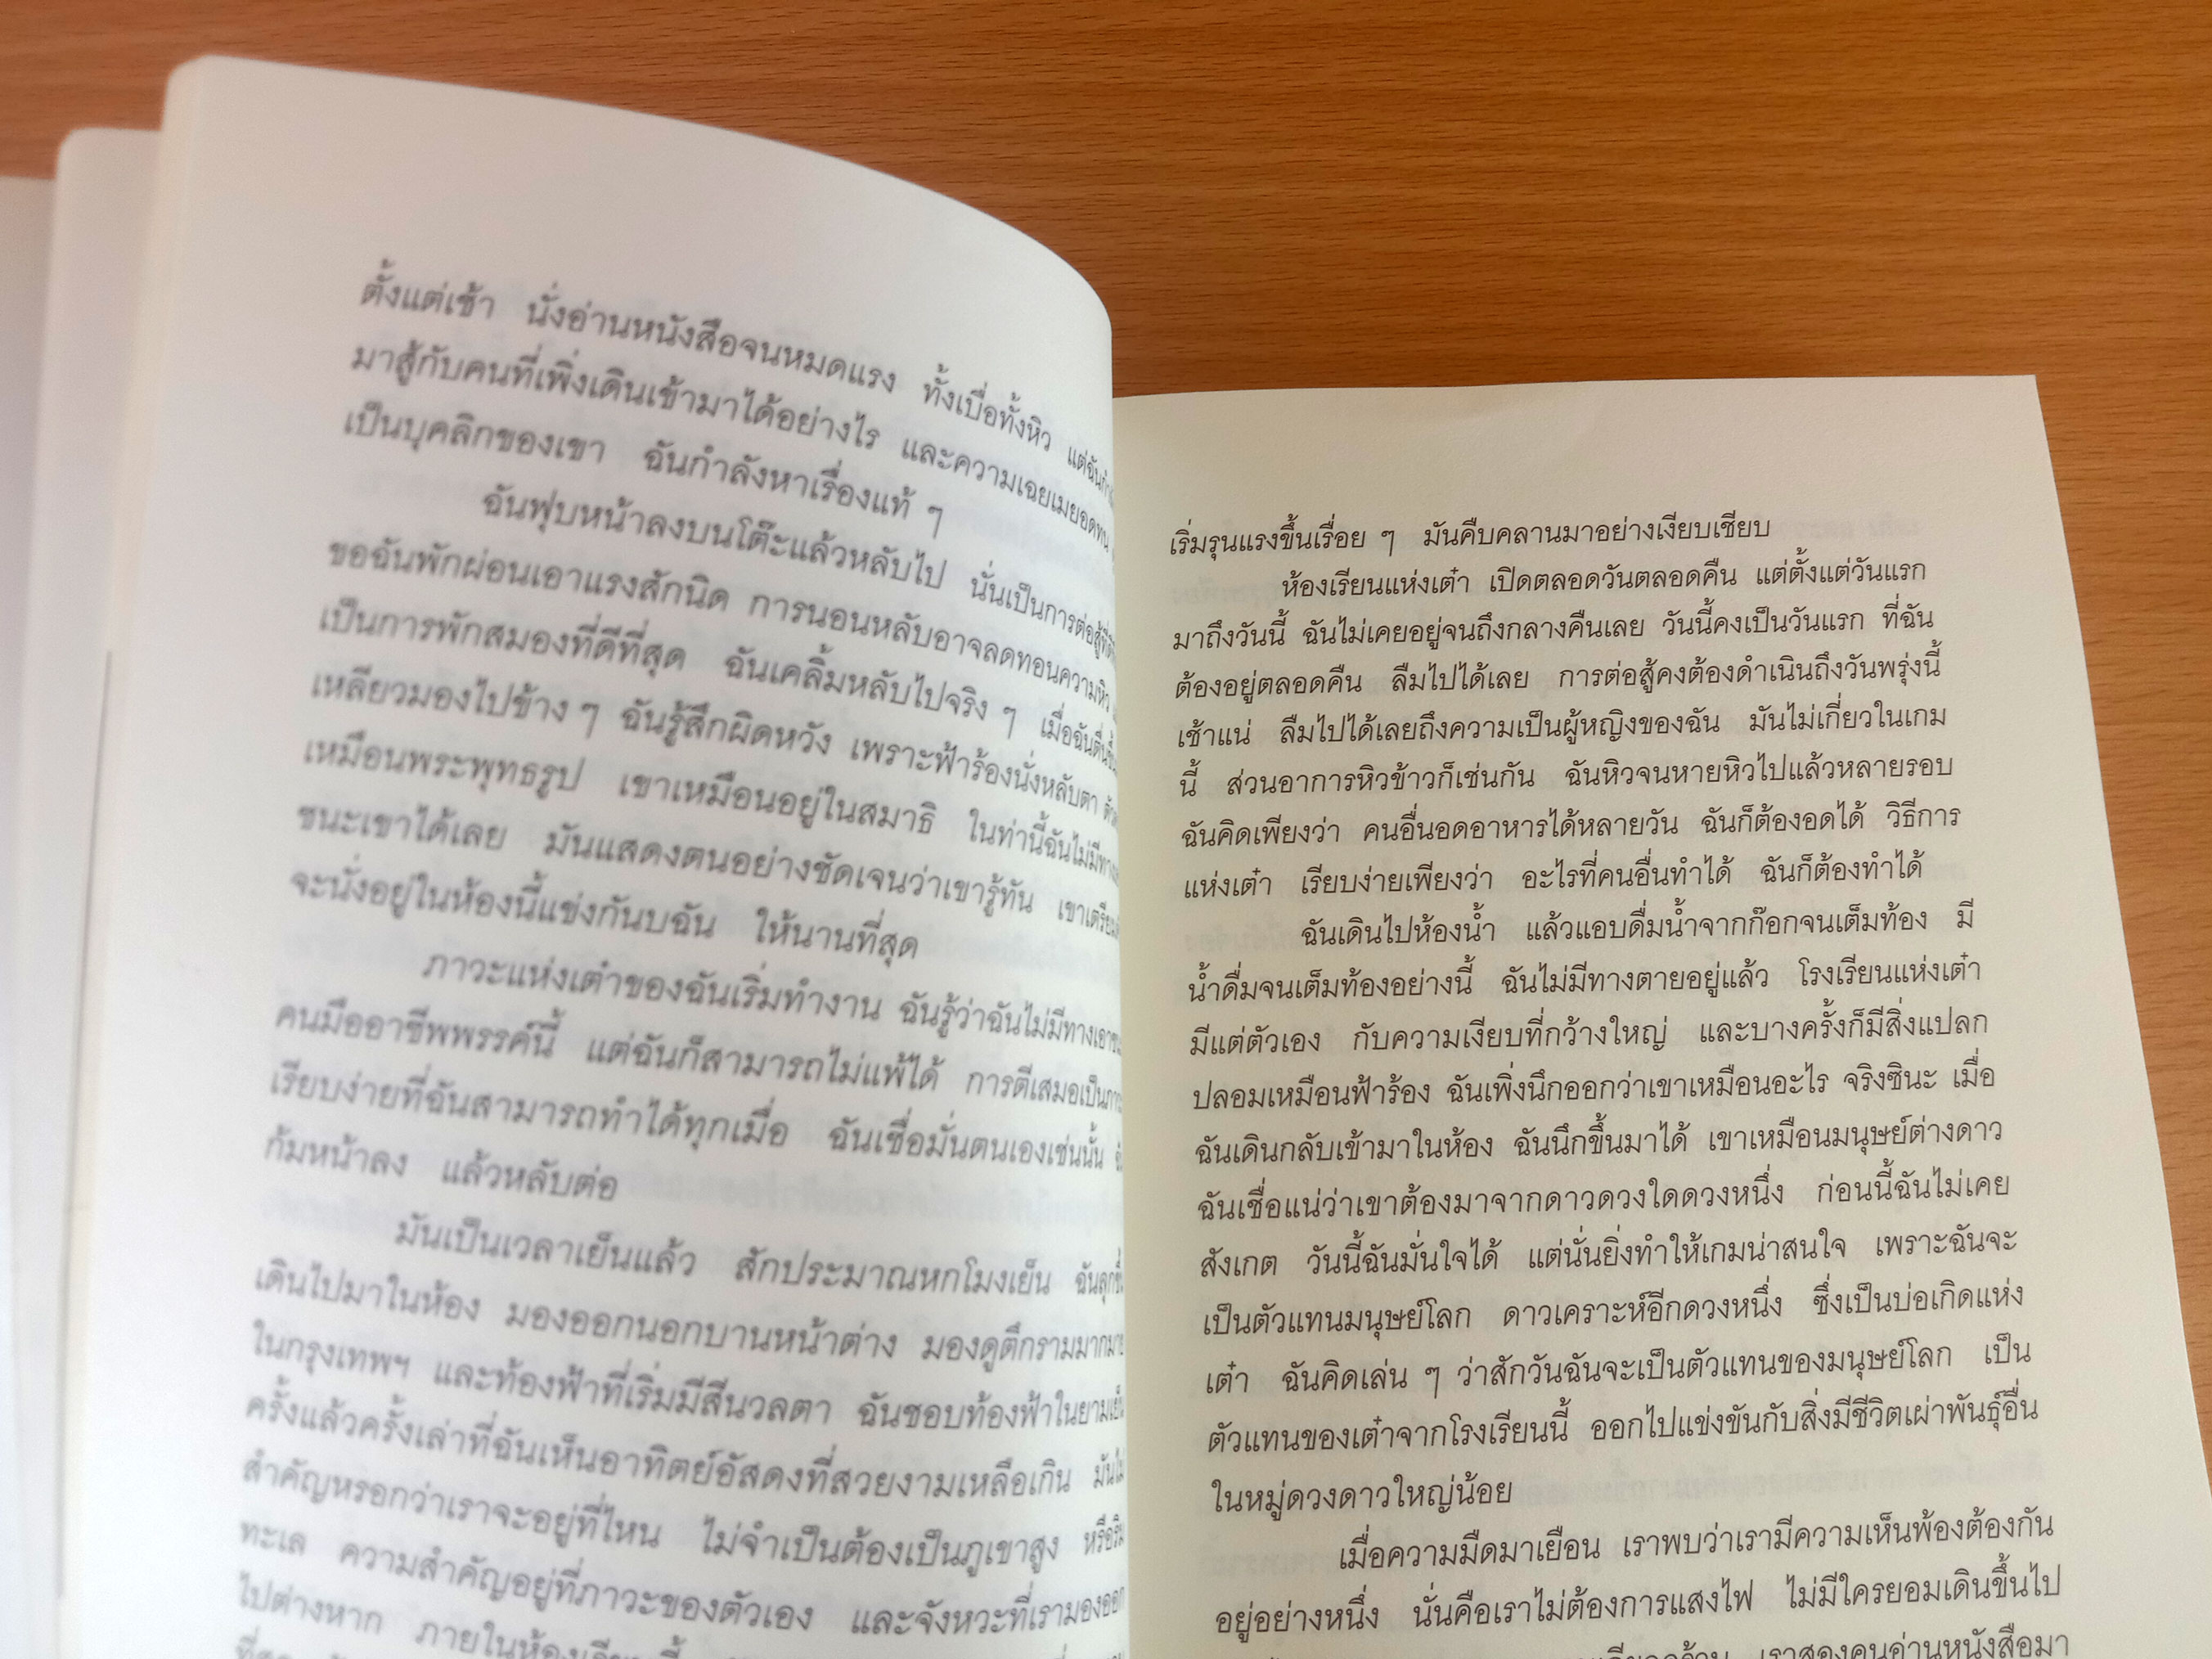 ตั้งแต่เช้า นั่งอ่านหนังสือจนหมดแรง ทั้งเบื่อทั้งหิว แต่ฉัน
มาสู้กับคนที่เพิ่งเดินเข้ามาได้อย่างไร และความเฉยเมยอดทน
เป็นบุคลิกของเขา ฉันกำลังหาเรื่องแท้ ๆ
ฉันฟุบหน้าลงบนโต๊ะแล้วหลับไป นั่นเป็นการต่อสู้ที่
ขอฉันพักผ่อนเอาแรงสักนิด การนอนหลับอาจลดทอนความหิว
เป็นการพักสมองที่ดีที่สุด ฉันเคลิ้มหลับไปจริง ๆ เมื่อฉันตื่นขึ้น
เหลียวมองไปข้าง ๆ ฉันรู้สึกผิดหวัง เพราะฟ้าร้องนั่งหลับตา
เหมือนพระพุทธรูป เขาเหมือนอยู่ในสมาธิ ในท่านี้ฉันไม่มีทาง
ชนะเขาได้เลย มันแสดงตนอย่างชัดเจนว่าเขารู้ทัน เขาเตรียม
จะนั่งอยู่ในห้องนี้แข่งกันบฉัน ให้นานที่สุด
ภาวะแห่งเต๋าของฉันเริ่มทำงาน ฉันรู้ว่าฉันไม่มีทางเอา
คนมืออาชีพพรรค์นี้ แต่ฉันก็สามารถไม่แพ้ได้ การตีเสมอเป็น
เรียบง่ายที่ฉันสามารถทำได้ทุกเมื่อ ฉันเชื่อมั่นตนเองเช่นนั้น
ก้มหน้าลง แล้วหลับต่อ
มันเป็นเวลาเย็นแล้ว สักประมาณหกโมงเย็น ฉันลุกขึ้น
เดินไปมาในห้อง มองออกนอกบานหน้าต่าง มองดูตึกรามมากมาย
ในกรุงเทพฯ และท้องฟ้าที่เริ่มมีสีนวลตา ฉันชอบท้องฟ้าในยามเย็น
ครั้งแล้วครั้งเล่าที่ฉันเห็นอาทิตย์อัสดงที่สวยงามเหลือเกิน มันไม่
สำคัญหรอกว่าเราจะอยู่ที่ไหน ไม่จำเป็นต้องเป็นภูเขาสูง หรือริม
ทะเล ความสำคัญอยู่ที่ภาวะของตัวเอง และจังหวะที่เรามองออก
ไปต่างหาก ภายในห้องเรียนนี้
เริ่มรุนแรงขึ้นเรื่อย ๆ มันคืบคลานมาอย่างเงียบเชียบ
ห้องเรียนแห่งเต๋า เปิดตลอดวันตลอดคืน แต่ตั้งแต่วันแรก
มาถึงวันนี้ ฉันไม่เคยอยู่จนถึงกลางคืนเลย วันนี้คงเป็นวันแรก ที่ฉัน
ต้องอยู่ตลอดคืน ลืมไปได้เลย การต่อสู้คงต้องดำเนินถึงวันพรุ่งนี้
เช้าแน่ ลืมไปได้เลยถึงความเป็นผู้หญิงของฉัน มันไม่เกี่ยวในเกม
นี้ ส่วนอาการหิวข้าวก็เช่นกัน ฉันหิวจนหายหิวไปแล้วหลายรอบ
ฉันคิดเพียงว่า คนอื่นอดอาหารได้หลายวัน ฉันก็ต้องอดได้ วิธีการ
แห่งเต๋า เรียบง่ายเพียงว่า อะไรที่คนอื่นทำได้ ฉันก็ต้องทำได้
ฉันเดินไปห้องน้ำ แล้วแอบดื่มน้ำจากก๊อกจนเต็มท้อง มี
น้ำดื่มจนเต็มท้องอย่างนี้ ฉันไม่มีทางตายอยู่แล้ว โรงเรียนแห่งเต๋า
มีแต่ตัวเอง กับความเงียบที่กว้างใหญ่ และบางครั้งก็มีสิ่งแปลก
ปลอมเหมือนฟ้าร้อง ฉันเพิ่งนึกออกว่าเขาเหมือนอะไร จริงซินะ เมื่อ
ฉันเดินกลับเข้ามาในห้อง ฉันนึกขึ้นมาได้ เขาเหมือนมนุษย์ต่างดาว
ฉันเชื่อแน่ว่าเขาต้องมาจากดาวดวงใดดวงหนึ่ง ก่อนนี้ฉันไม่เคย
สังเกต วันนี้ฉันมั่นใจได้ แต่นั่นยิ่งทำให้เกมน่าสนใจ เพราะฉันจะ
เป็นตัวแทนมนุษย์โลก ดาวเคราะห์อีกดวงหนึ่ง ซึ่งเป็นบ่อเกิดแห่ง
เต๋า ฉันคิดเล่น ๆ ว่าสักวันฉันจะเป็นตัวแทนของมนุษย์โลก เป็น
ตัวแทนของเต๋าจากโรงเรียนนี้ ออกไปแข่งขันกับสิ่งมีชีวิตเผ่าพันธุ์อื่น
ในหมู่ดวงดาวใหญ่น้อย
เมื่อความมืดมาเยือน เราพบว่าเรามีความเห็นพ้องต้องกัน
อยู่อย่างหนึ่ง นั่นคือเราไม่ต้องการแสงไฟ ไม่มีใครยอมเดินขึ้นไป
เราสองคนอ่านหนังสือมา